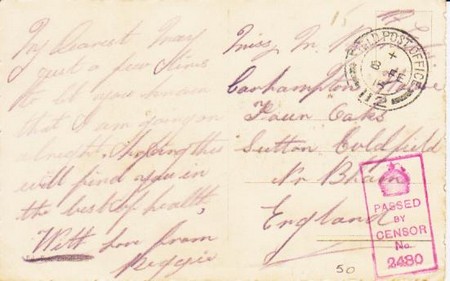 My Dearest May
Just a few lines
to let you know
that I am going on
alright. Hoping this
will find you in
the best of health,
With love from
Reggie
15
Miss M.
Carhampton
Four Oaks
Sutton Coldfield
Nr Bham
England
FIELD POST OFFICE
FE
112
PASSED
BY
CENSOR
No.
2480
50